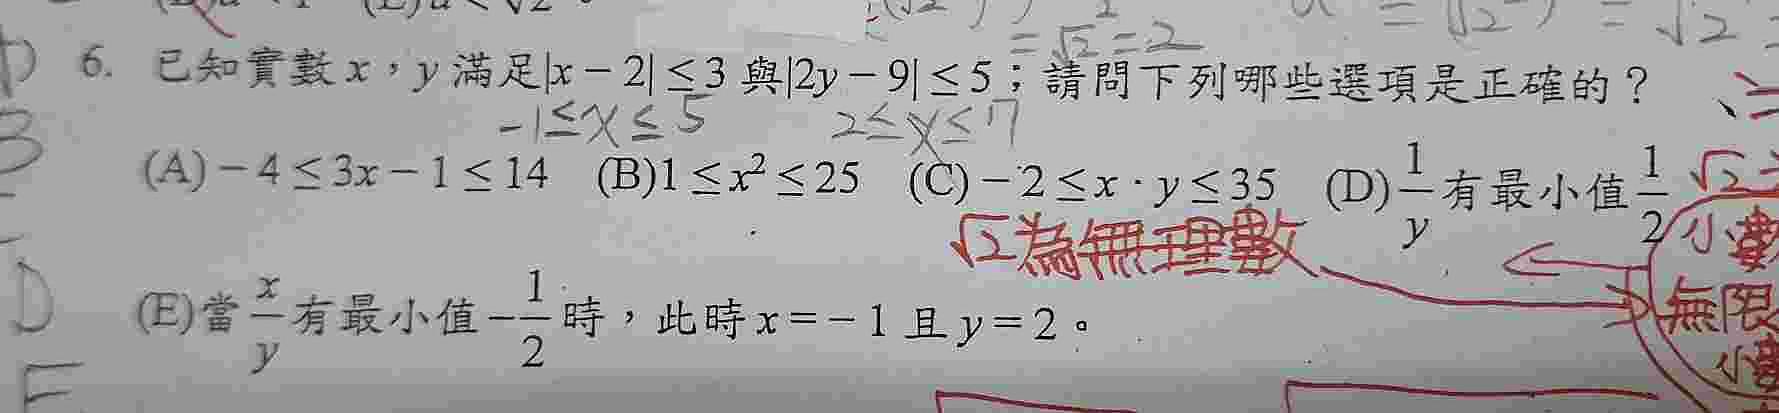 6. 已知實數 x，y 滿足|x − 2| ≤ 3 與|2y − 9| ≤ 5；請問下列哪些選項是正確的？
-1≤x≤5 2≤y≤7
(A) − 4 ≤ 3x − 1 ≤ 14 (B)1 ≤ x² ≤ 25 (C) − 2 ≤ x · y ≤ 35 (D) 1/y 有最小值 1/2
√2為無理數
(E)當 x/y 有最小值 − 1/2 時，此時 x = − 1 且 y = 2。
無限